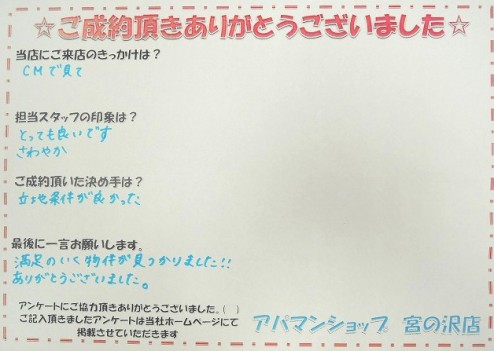 ☆ご成約頂きありがとうございました☆
当店にご来店のきっかけは？
CMで見て
担当スタッフの印象は？
とっても良いです
さわやか
ご成約頂いた決め手は？
立地条件が良かった
最後に一言お願いします。
満足のいく物件が見つかりました!!
ありがとうございました。
アンケートにご協力頂きありがとうございました。(　)
ご記入頂きましたアンケートは当社ホームページにて
掲載させていただきます
アパマンショップ 宮の沢店